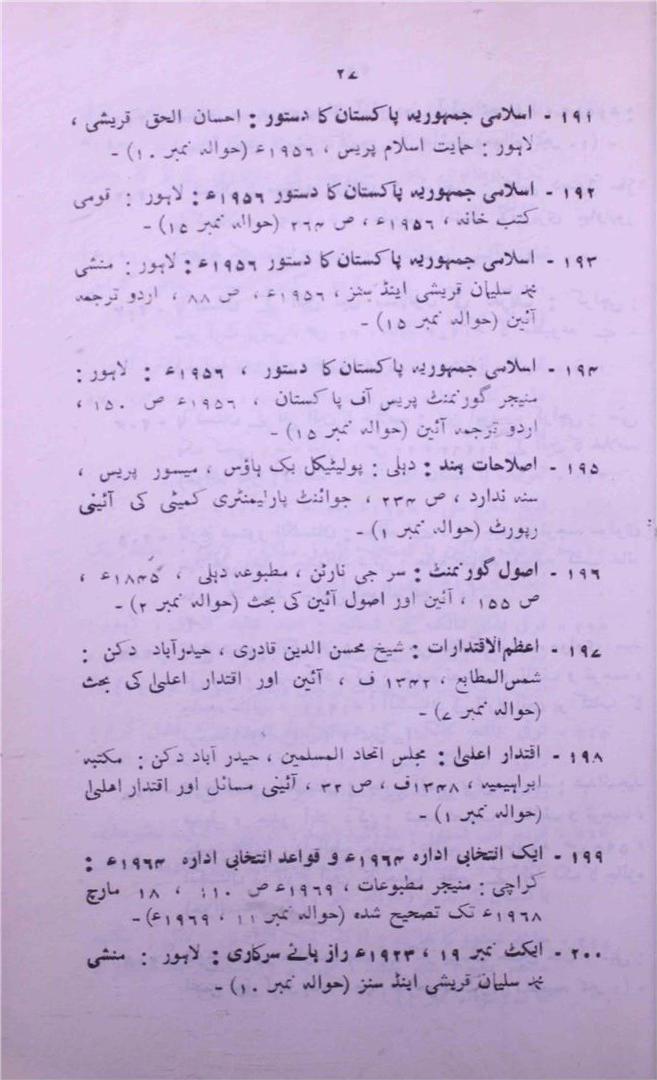 ۲۷
۱۹۱ - اسلامی جمہوریہ پاکستان کا دستور : احسان الحق قریشی ،
لاہور : حمایت اسلام پریس ، ۱۹۵۶ء (حوالہ نمبر ۱۰) -
۱۹۲ - اسلامی جمہوریہ پاکستان کا دستور ۱۹۵۶ء : لاہور : قومی
کتب خانہ ، ۱۹۵۶ء ، ص ۲۶۴ (حوالہ نمبر ۱۵) -
۱۹۳ - اسلامی جمہوریہ پاکستان کا دستور ۱۹۵۶ء : لاہور : منشی
محمد سلیمان قریشی اینڈ سنز ، ۱۹۵۶ء ، ص ۸۸ ، اردو ترجمہ
آئین (حوالہ نمبر ۱۵) -
۱۹۴ - اسلامی جمہوریہ پاکستان کا دستور ، ۱۹۵۶ء : لاہور :
منیجر گورنمنٹ پریس آف پاکستان ، ۱۹۵۶ء ص ۱۵۰ ،
اردو ترجمہ آئین (حوالہ نمبر ۱۵) -
۱۹۵ - اصلاحات ہند : دہلی : پولیٹیکل بک ہاؤس ، میسور پریس ،
سنہ ندارد ، ص ۲۳۴ ، جوائنٹ پارلیمنٹری کمیٹی کی آئینی
رپورٹ (حوالہ نمبر ۱) -
۱۹۶ - اصول گورنمنٹ : سر جی نارٹن ، مطبوعہ دہلی ، ۱۸۴۵ء ،
ص ۱۵۵ ، آئین اور اصول آئین کی بحث (حوالہ نمبر ۲) -
۱۹۷ - اعظم الاقتدارات : شیخ محسن الدین قادری ، حیدرآباد دکن :
شمس المطابع ، ۱۳۴۲ ف ، آئین اور اقتدار اعلیٰ کی بحث
(حوالہ نمبر ۷) -
۱۹۸ - اقتدار اعلیٰ : مجلس اتحاد المسلمین ، حیدر آباد دکن : مکتبہ
ابراہیمیہ ، ۱۳۴۸ف ، ص ۳۲ ، آئینی مسائل اور اقتدار اعلیٰ
(حوالہ نمبر ۱) -
۱۹۹ - ایک انتخابی ادارہ ۱۹۶۴ء و قواعد انتخابی ادارہ ۱۹۶۴ء :
کراچی : منیجر مطبوعات ، ۱۹۶۹ء ص ، ۱۸ مارچ
۱۹۶۸ء تک تصحیح شدہ (حوالہ نمبر ۱۱ ، ۱۹۶۹ء) -
۲۰۰ - ایکٹ نمبر ۱۹ ، ۱۹۲۳ء راز ہائے سرکاری : لاہور : منشی
محمد سلیمان قریشی اینڈ سنز (حوالہ نمبر ۱۰) -